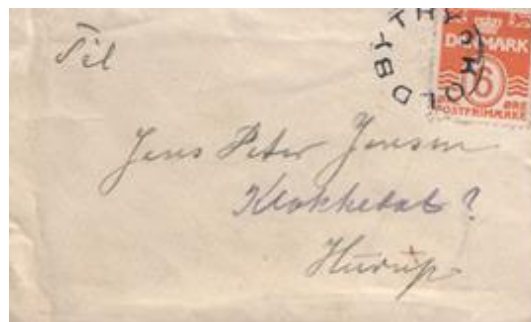 Til
KOLDBY-THY
DANMARK
6
ØRE
POSTFRIMÆRKE
Jens Peter Jensen
Klokkebak?
Hurup